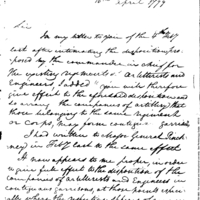 10th April 1799
Sir
In my letter to you of the 9th Feby
last after intimating the disposition pro-
posed by the commander in chief for
the upper regiments of Artillerists and
Engineers, I added "you will therefore
give effect to the aforesaid disposition and
so arrange the companies of artillery that
those belonging to the same regiment
or Corps, may form contiguous Garrisons
I had written to Major General Pinck-
ney in Feby last to the same effect
It now appears to me proper, in order
to give full effect to the disposition of the
companies of Artillerists and Engineers in
contiguous garrisons, at those posts where